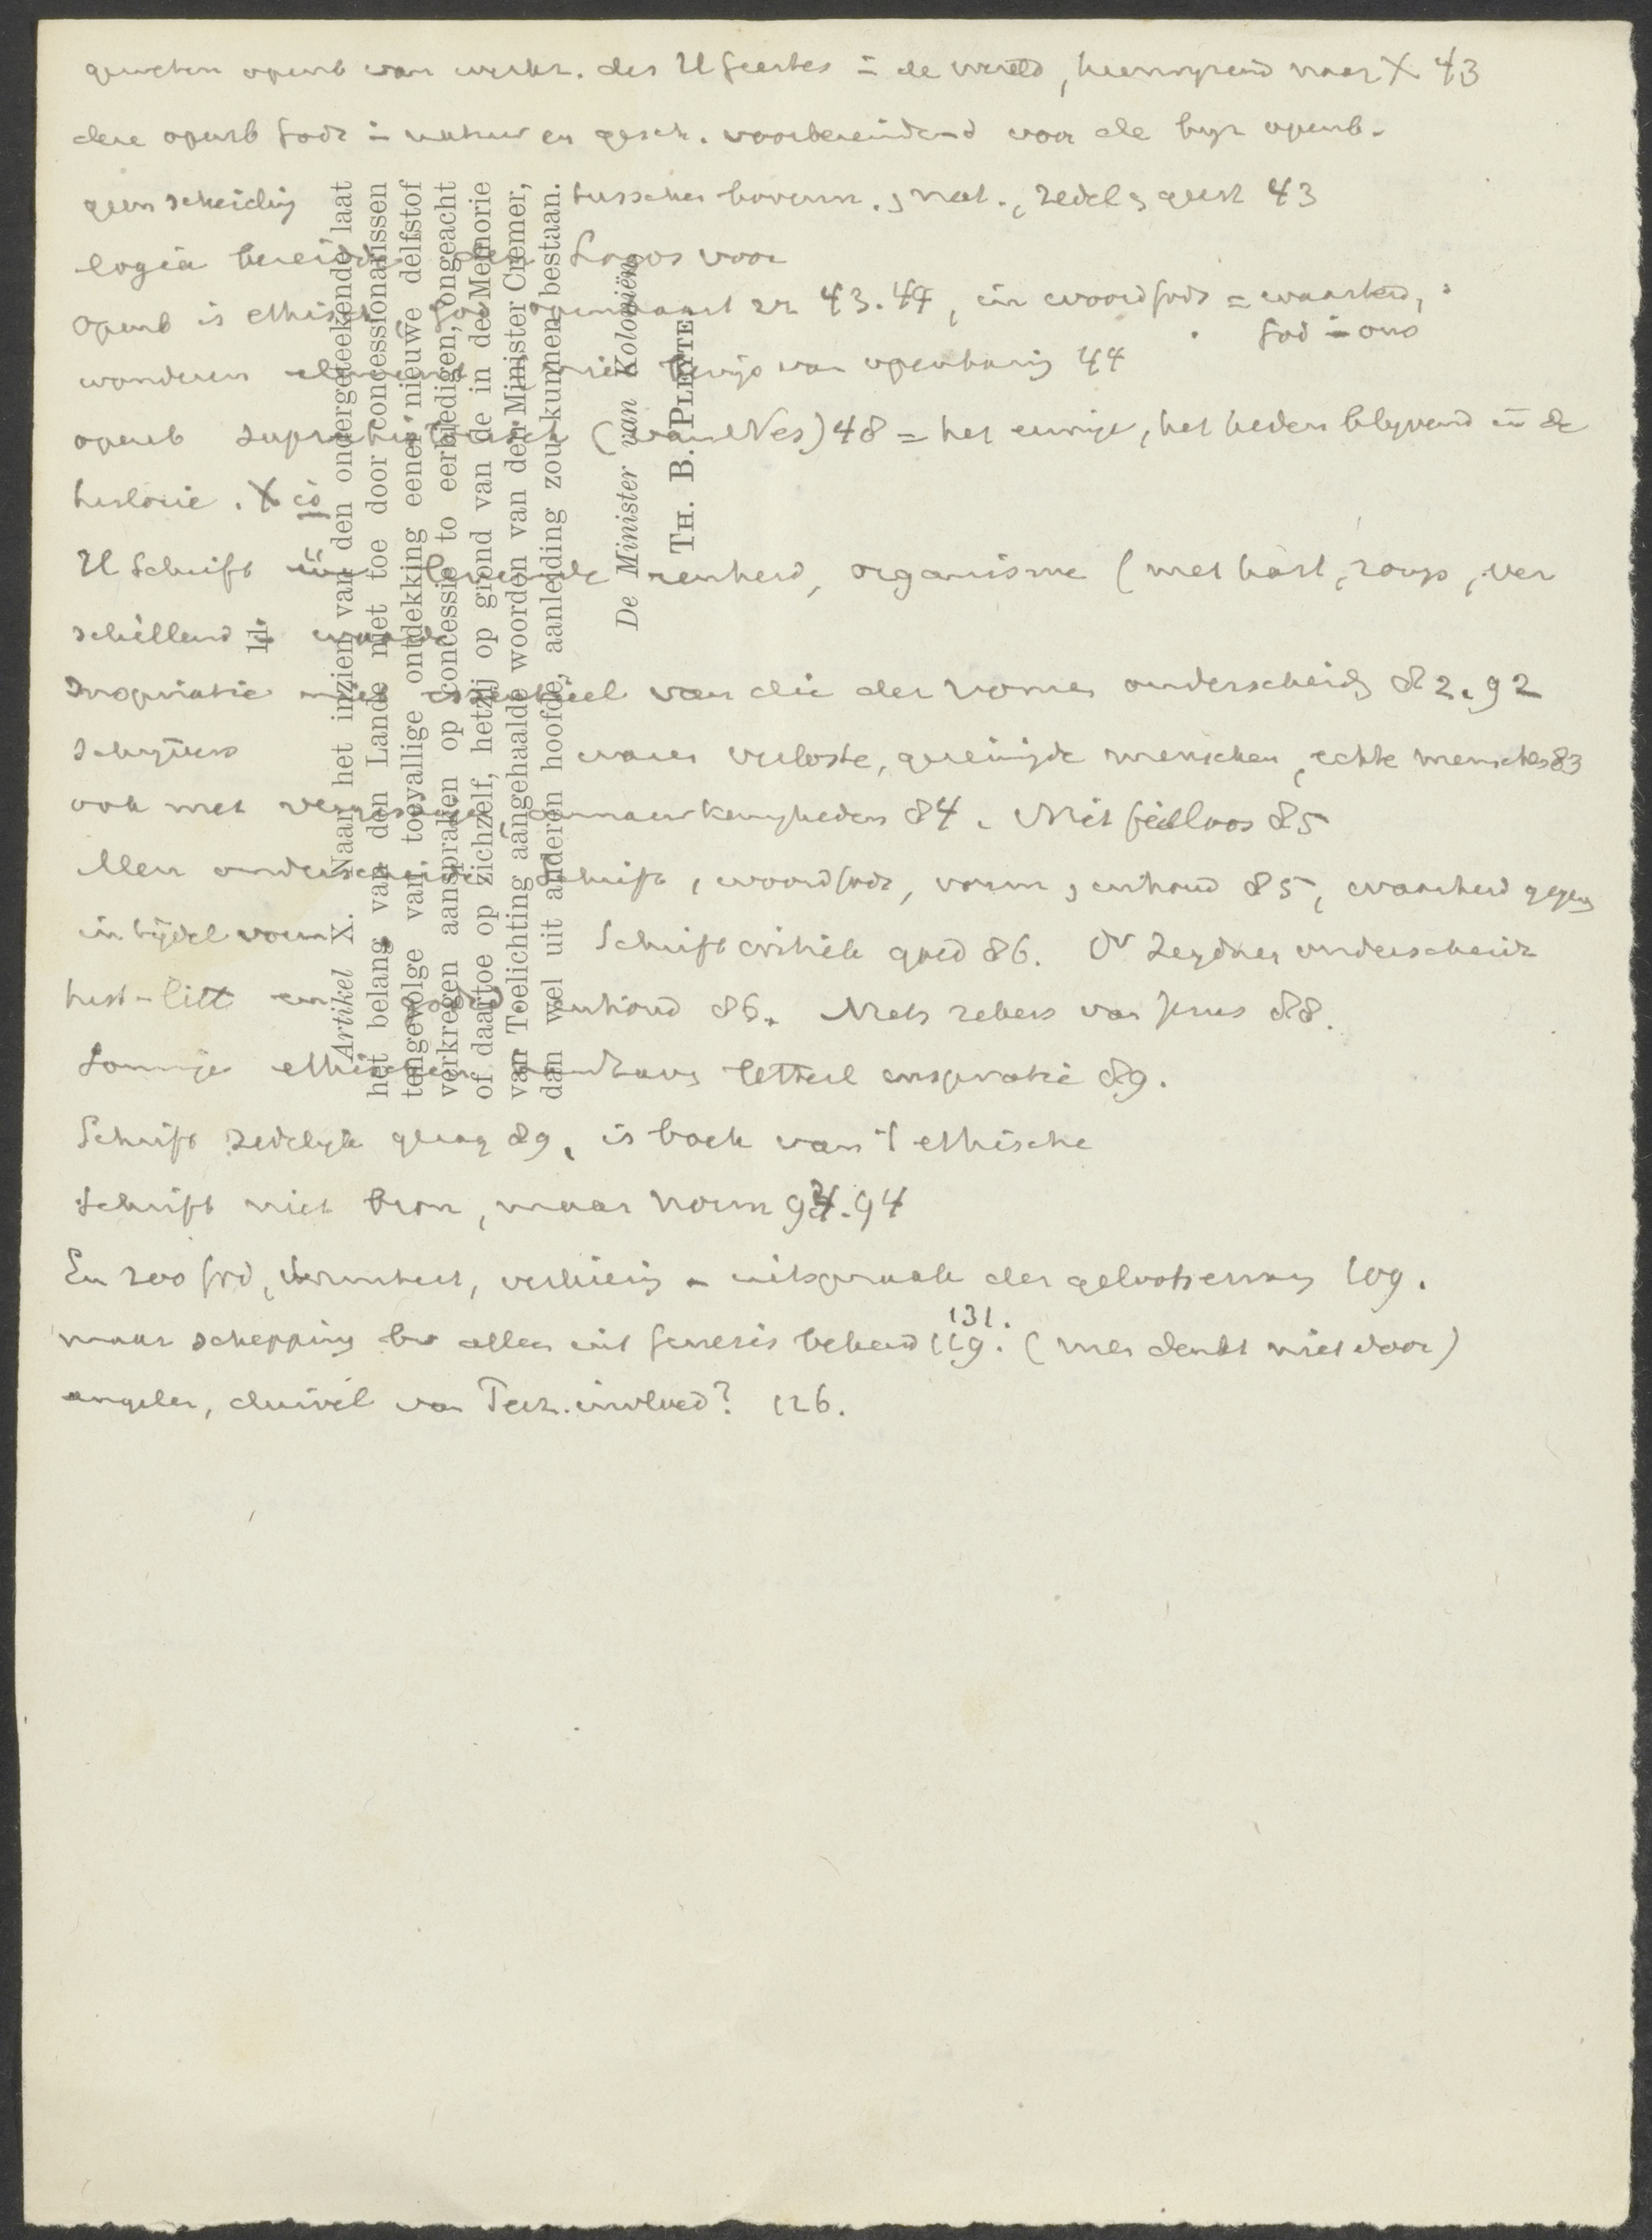 geweten openb van werkz. des H Geestes = de wereld, heenwijzend naar X 43
deze openb Gods in natuur en gesch. voorbereidend voor de byz openb.
geen scheiding tusschen bovenn. , nat., zedel , geest 43
logia den Logos voor
openb is ethisch God openbaart zn 43.44, in woord Gods = waarheid,
God in ons
wonderen niet bewijs van openbaring 44
openb (van Nes) 48 = het eeuwige, het heden blyvend in de
historie. X is
H Schrift eenheid, organisme (met hart, romp, ver
schillend in waarde
Inspiratie niet essentieel van die der vrome onderscheidn 82.92
Schrijvers waren verloste, gereinigde menschen, echte menschen 83
ook met vergissingen, onnauwkeurigheden 84. Niet feilloos 85
Men onderscheide Schrift, woord Gods, vorm , inhoud 85, waarheid gegeven
in tijdel vorm Schriftcritiek goed 86. Dr Leydner onderscheidt
hist-litt en inhoud 86. Niets zekers van Jezus 88.
Sommige ethischen handhaven letterl inspiratie 89.
Schrift zedelijk gezag 89, is boek van 't ethische
Schrift niet bron, maar norm 94.94
En zoo God, verkiezing = uitspraak der geloofservaring 109.
131.
maar schepping bv alleen uit Genesis bekend 119. (men denkt niet door)
engelen, duivel van Perz. invloed? 126.
11
Artikel X. Naar het inzien van den ondergeteekende laat
het belang van den Lande niet toe door concessionarissen
tengevolge van toevallige ontdekking eener nieuwe delfstof
verkregen aanspraken op concessie to eerbiedigen, ongeacht
of daartoe op zichzelf, hetzij op grond van de in de Memorie
van Toelichting aangehaalde woorden van den Minister Cremer,
dan wel uit anderen hoofde, aanleiding zou kunnen bestaan.
De Minister van Koloniën,
TH. B. PLEYTE.